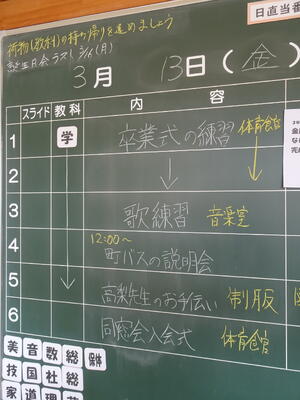 荷物(教科)の持ち帰りを進めましょう
誕生日会ラスト 3/16(月)
日直当番
3月 13日(金)
スライド 教科 内 容
1 学 卒業式の練習 体育館
2
3 歌練習 音楽室
4 12:00〜
町バスの説明会
5 高梨先生のお手伝い 制服
6 同窓会入会式 体育館
美 音 数 総
技 国 社 総
家 道 理 英